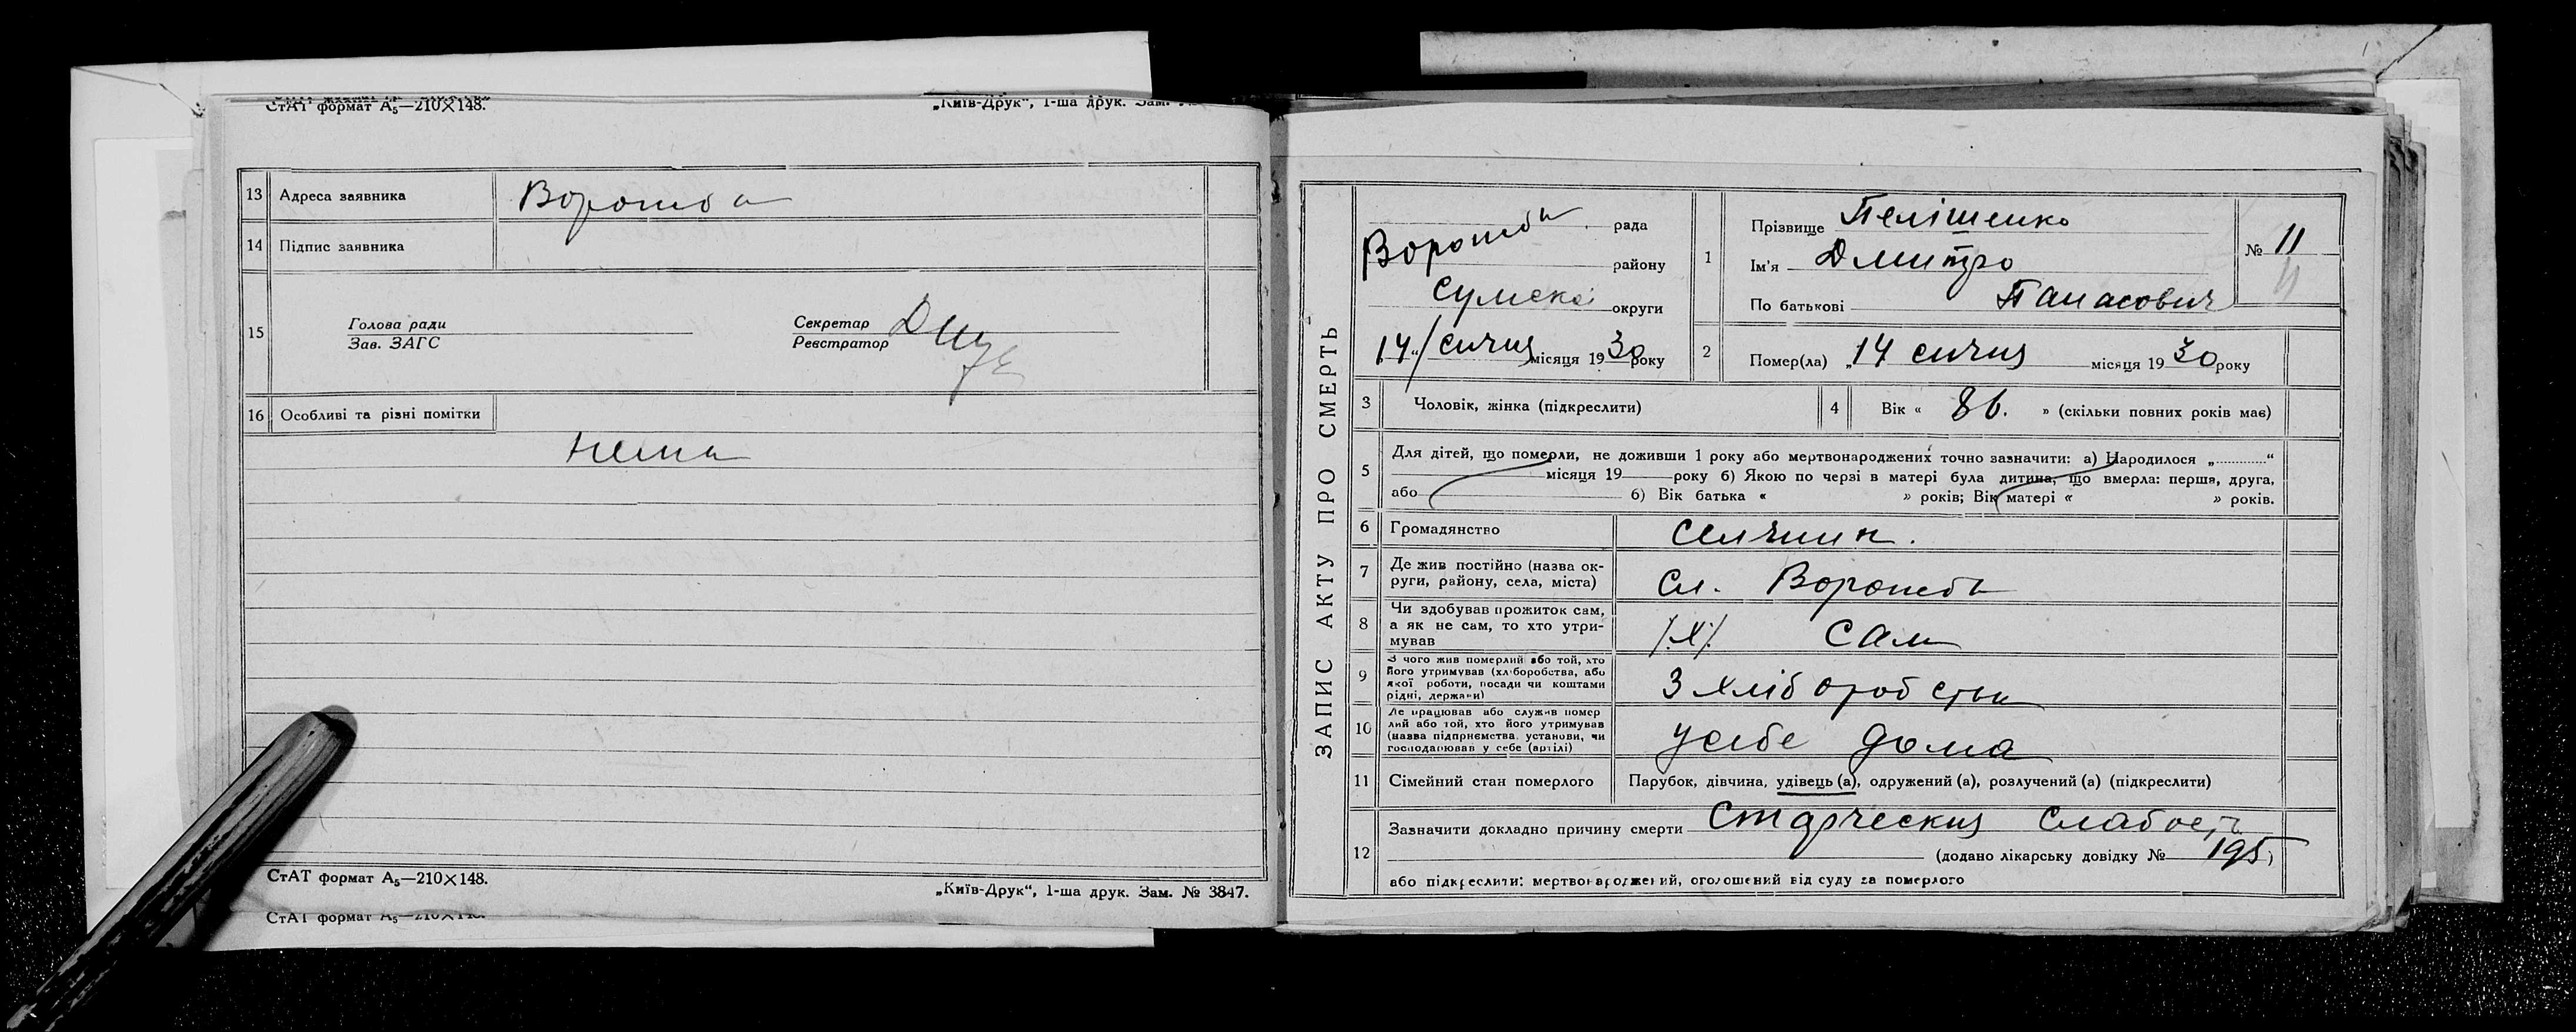 СтАТ формат А₅—210×148.
„Київ-Друк“, 1-ша друк. Зам.
13 Адреса заявника Ворожба
14 Підпис заявника
15 Голова ради
Зав. ЗАГС
Секретар
Реєстратор
16 Особливі та різні помітки
нема
СтАТ формат А₅—210×148.
„Київ-Друк“, 1-ша друк. Зам. № 3847.
СтАТ формат А₅—210×148.
ЗАПИС АКТУ ПРО СМЕРТЬ
Ворожба рада
району
Сумска округи
14 “/ січня місяця 1930 року
1 Прізвище Пелішенко
Ім'я Дмитро
По батькові Панасович
№ 11
11
2 Помер(ла) „ 14 січня місяця 1930 року
3 Чоловік, жінка (підкреслити)
4 Вік « 86. » (скільки повних років має)
5 Для дітей, що померли, не доживши 1 року або мертвонароджених точно зазначити: а) Народилося „ “
місяця 19 року б) Якою по черзі в матері була дитина, що вмерла: перша, друга,
або б) Вік батька « » років; Вік матері « » років.
6 Громадянство
7 Де жив постійно (назва ок-
руги, району, села, міста)
Сл. Ворожба
8 Чи здобував прожиток сам,
а як не сам, то хто утри-
мував
сам
9 З чого жив померлий або той, хто
його утримував (хліборобства, або
якої роботи, посади чи коштами
рідні, держави)
З хліборобства
10 Де працював або служив помер
лий або той, хто його утримував
(назва підприємства, установи, чи
господарював у себе (артілі)
у себе дома
11 Сімейний стан померлого Парубок, дівчина, удівець (а), одружений (а), розлучений (а) (підкреслити)
12 Зазначити докладно причину смерти Старческия слабость
(додано лікарську довідку № 195)
або підкреслити: мертвонароджений, оголошений від суду за померлого